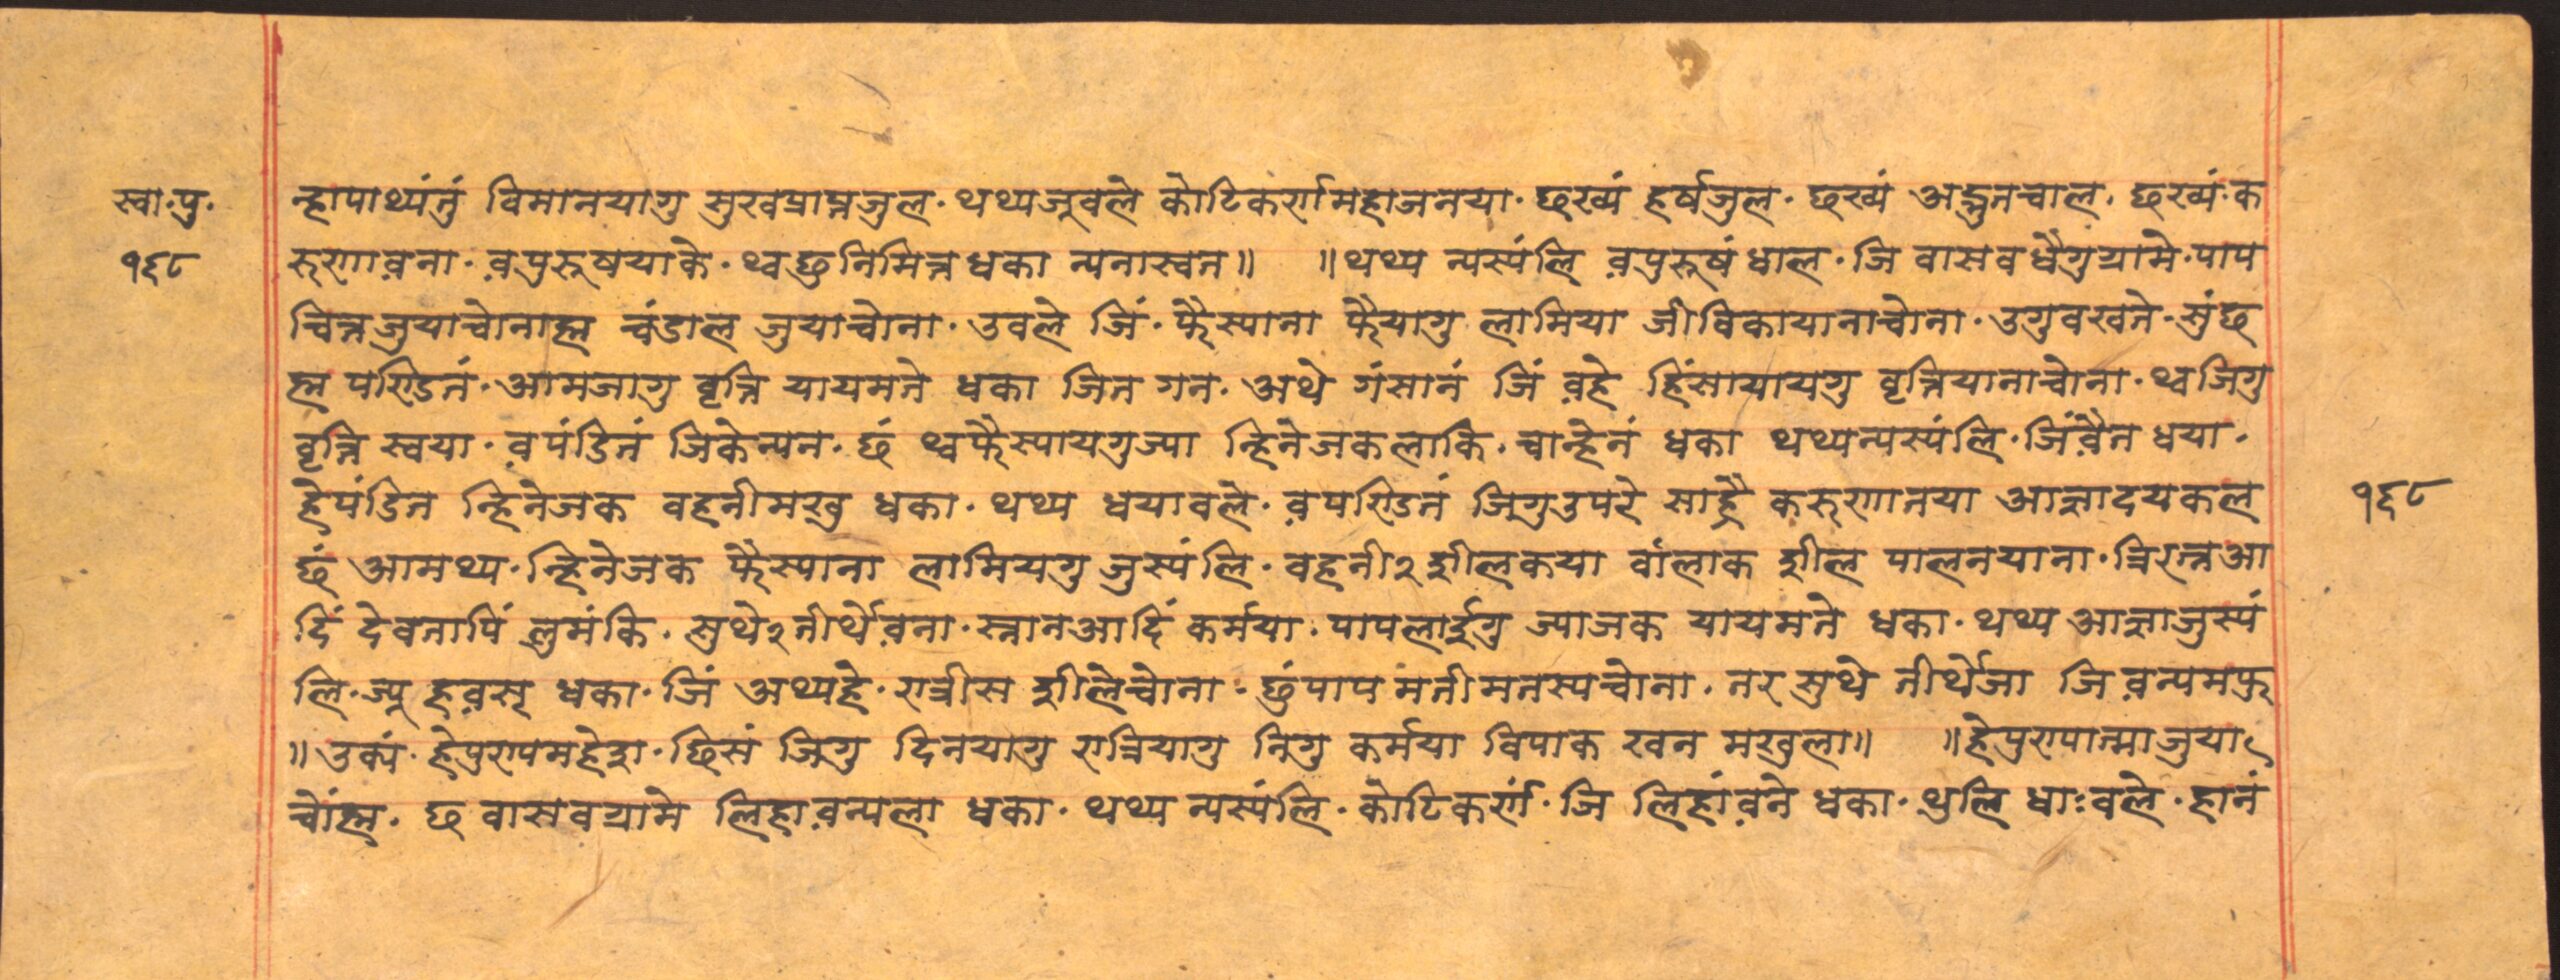 स्वा.पु.
१६८
न्हापाथ्यंतुं विमानयागु सुखप्राप्तजुल. थथ्यजूवले कोटिकर्णमहाजनया. छखयं हर्षजुल. छखयं अद्भुतचाल. छखयं.क
रुणाव़ना. व़पुरूषयाके. थ्वछुनिमित्त धका न्यनास्वत॥ ॥थथ्य न्यस्यंलि व़पुरूषं धाल. जि वासव धैगुग्रामे.पाप
चित्तजुयाचोनाह्म चंडाल जुयाचोना. उवले जिं. फैस्याना फैयागु लामिया जीविकायानाचोना. उगुवखते.सुंछ
ह्म पण्डितं. आमजागु वृत्ति यायमते धका जित गन. अथे गंसानं जिं व़हे हिंसायायगु वृत्तियानाचोना. थ्वजिगु
वृत्ति स्वया. व़पंडितं जिकेन्यन. छं थ्वफैस्यायगुज्या न्हिनेजकलाकि. चान्हेनं धका थथ्यन्यस्यंलि. जिंव़ैत धया.
हेपंडित न्हिनेजक वहनीमखु धका. थथ्य धयावले. व़पण्डितं जिगुउपरे साह्रै करुणातया आज्ञादयकल
छं आमथ्य. न्हिनेजक फैस्याना लामियगु जुस्यंलि. वहनी२ शीलकया वांलाक शील पालनयाना. त्रिरत्नआ
दिं देवतापिं लुमंकि. सुथे२तीर्थेव़ना. स्नानआदिं कर्मया. पापलाईगु ज्याजक यायमते धका. थथ्य आज्ञाजुस्यं
लि. ज्यू हव़स् धका. जिं अथ्यहे. रात्रीस शीलेचोना. छुंपाप मतीमतस्यचोना. तर सुथे तीर्थेजा जि व़न्यमफु
॥उक्यं. हेपुरुषमहेश. छिसं जिगु दिनयागु रात्रियागु निगु कर्मया विपाक खन मखुला॥ ॥हेपुरुपात्माजुया
चोंह्म. छ वासवग्रामे लिहाव़न्यला धका. थथ्य न्यस्यंलि. कोटिकर्णं. जि लिहांव़ने धका. थुलि धाःवले. हानं
१६८